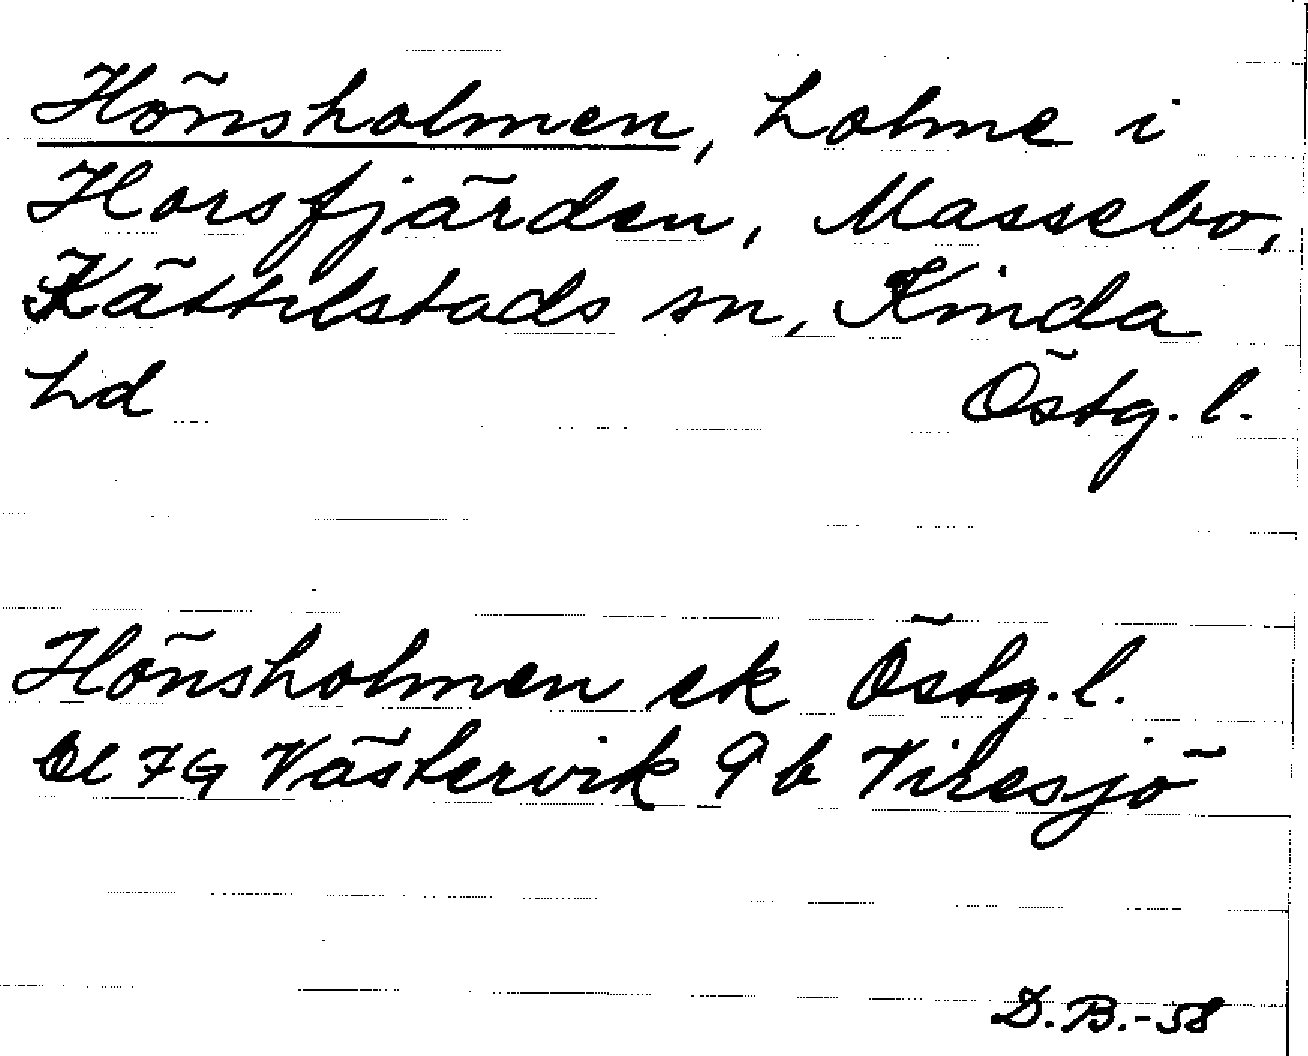 Hönsholmen, holme i
Horsfjärden, Massebo,
Kättilstads sn, Kinda
hd Östg. l.
Hönsholmen ek Östg. l.
7G Västervik 9 b Viresjö
D.B.-58